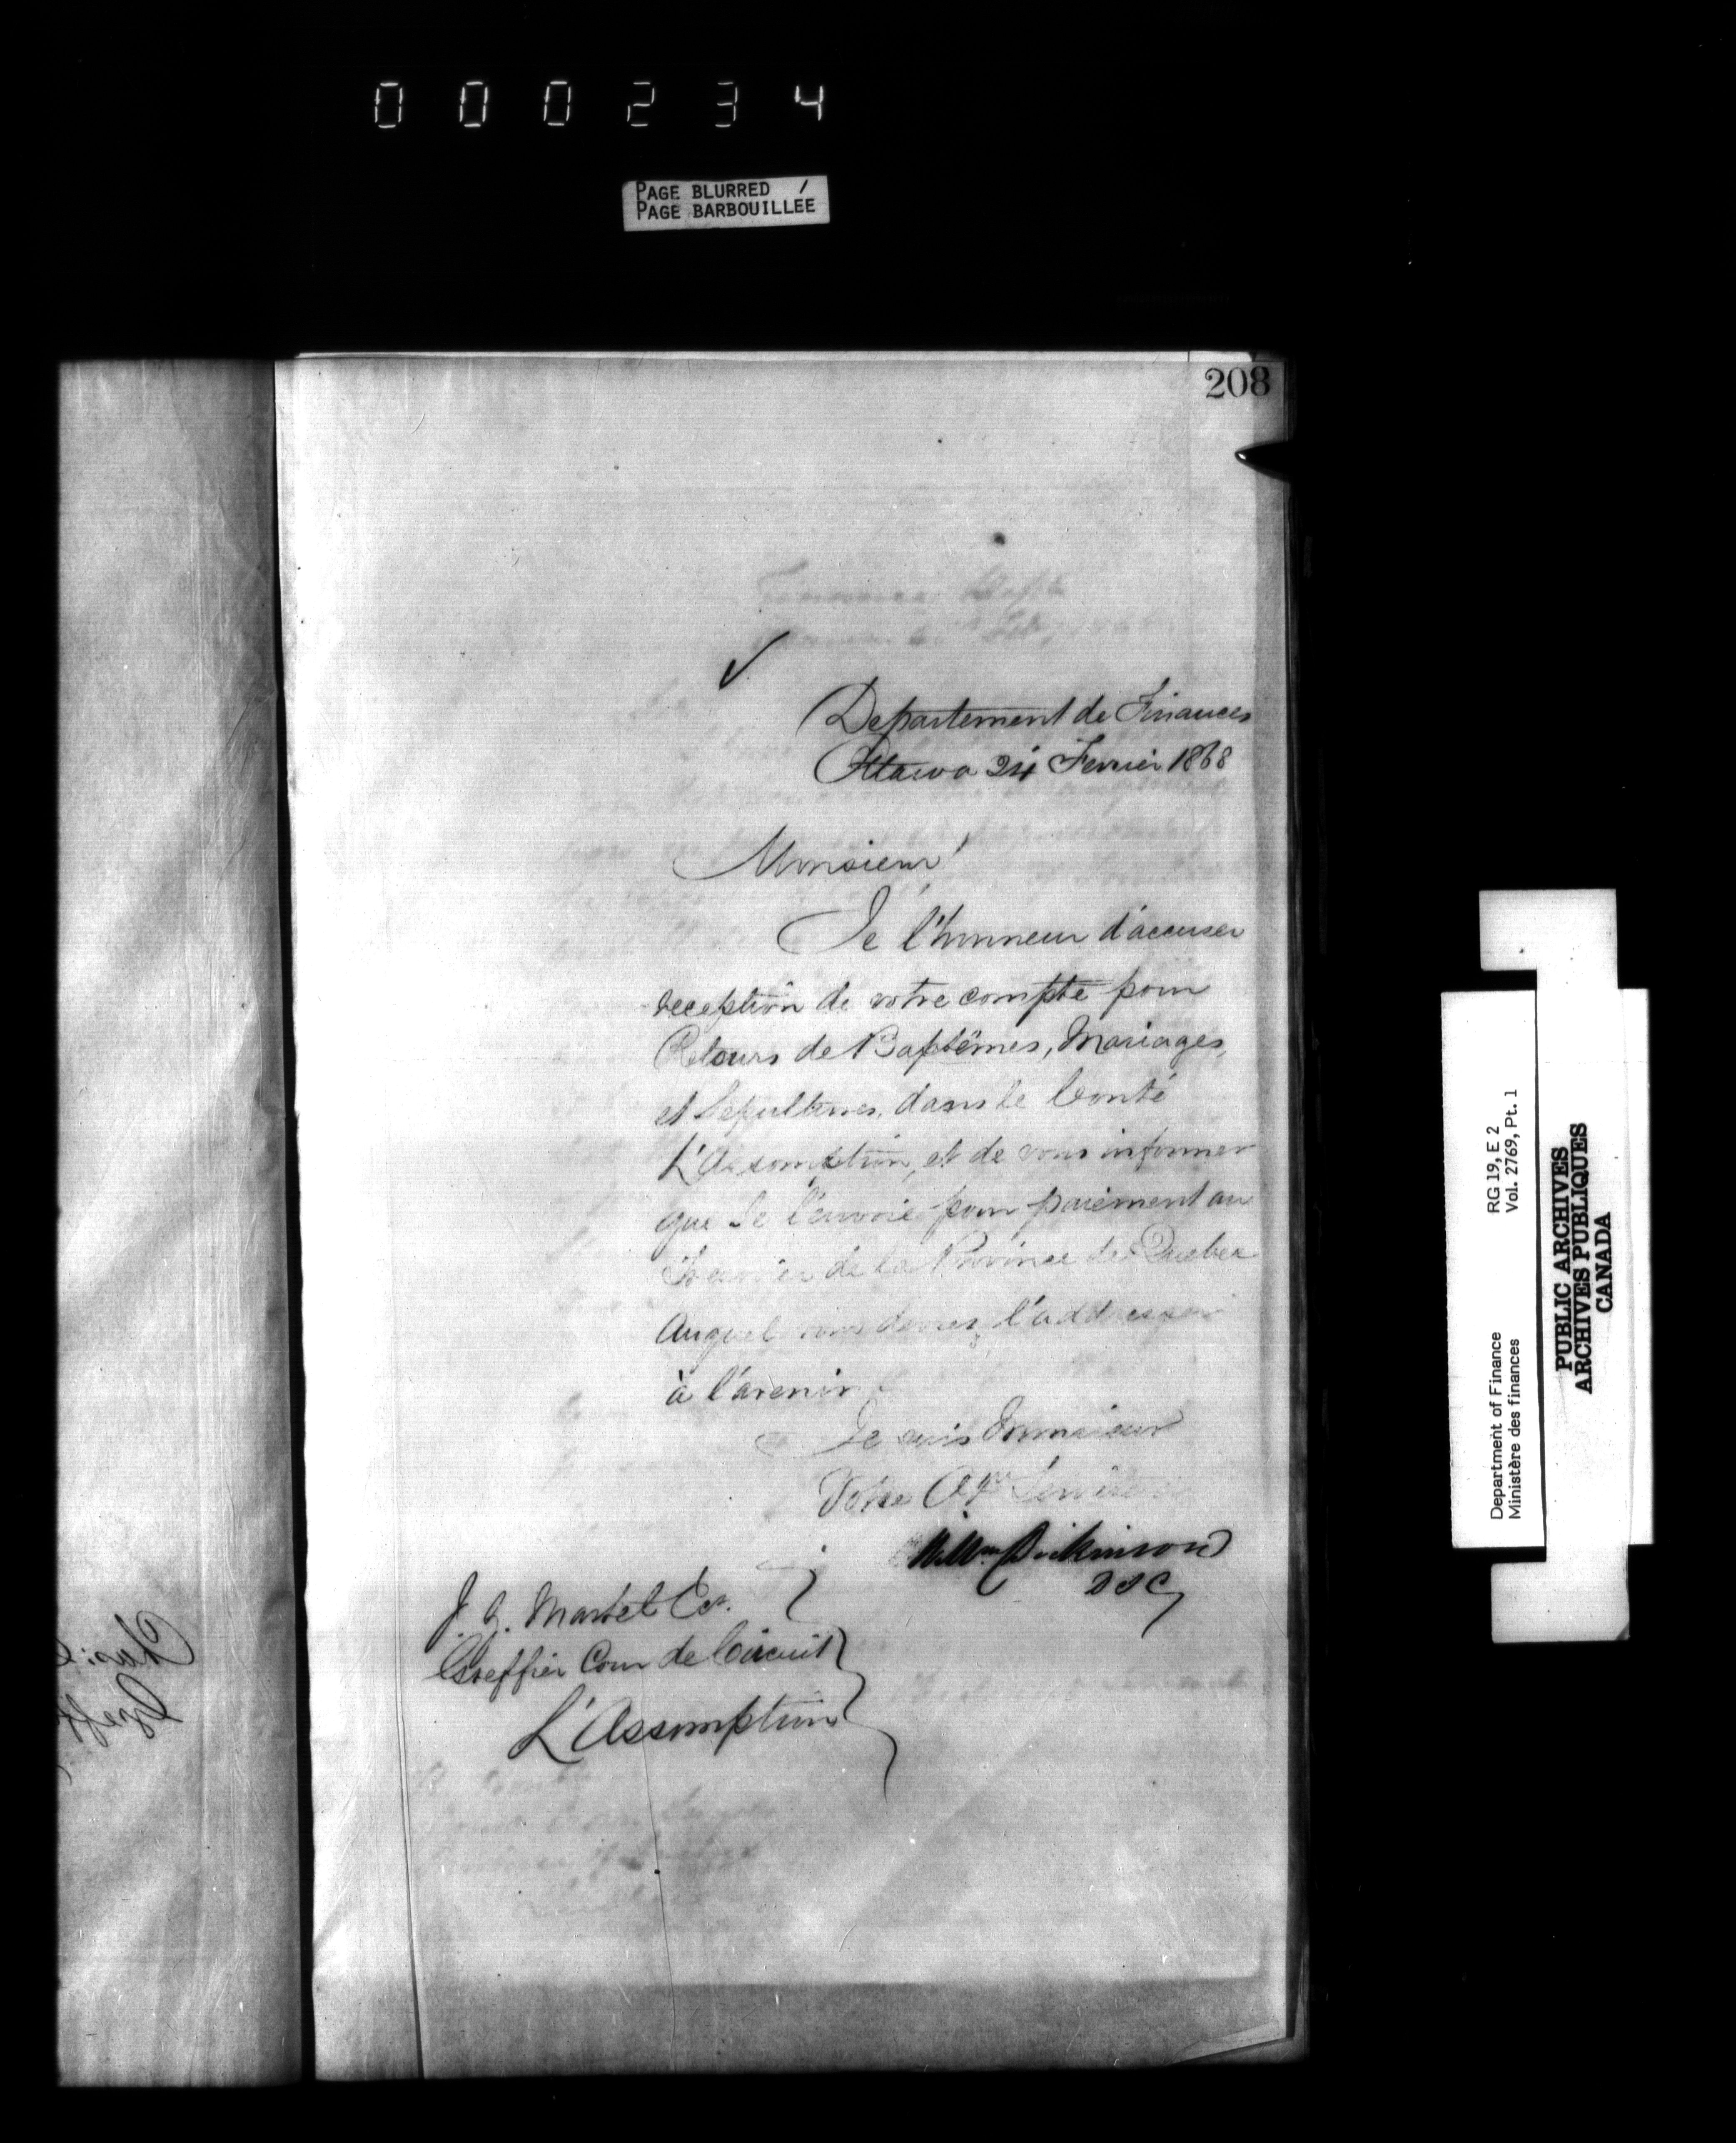 000234
PAGE BLURRED /
PAGE BARBOUILLÉE
208
✓
Departement de Finances
Ottawa 24 Fevrier 1868
Monsieur
Je l'honneur d'accuser
reception de votre compte pour
Retours de Baptêmes, Mariages,
et Sepultures, dans le Comté
L'Assomption, et de vous informer
que Je l'envoie pour paiement au
Tresorier de la Province de Quebec
Auquel vous devrez l'addresser
à l'avenir
Je suis Monsieur
Votre Obt Serviteur
Wm Dickinson
D I G
J. G. Martel Ecr.
Greffier Cour de Circuit
L'Assomption
Department of Finance
Ministère des finances
RG 19, E 2
Vol. 2769, Pt. 1
PUBLIC ARCHIVES
ARCHIVES PUBLIQUES
CANADA